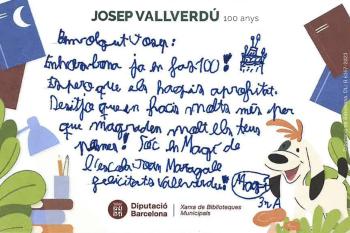 JOSEP VALLVERDÚ 100 anys
Benvolgut Josep:
Enhorabona ja en fas 100!
Espero que els hagis aprofitat.
Desitjo que en facis molts més per
que m'agraden molt els teus
poemes! Sóc en Magí de
l'escola Joan Maragall
felicitats Vallverdú! Magí
3r A
Diputació Barcelona
Xarxa de Biblioteques Municipals